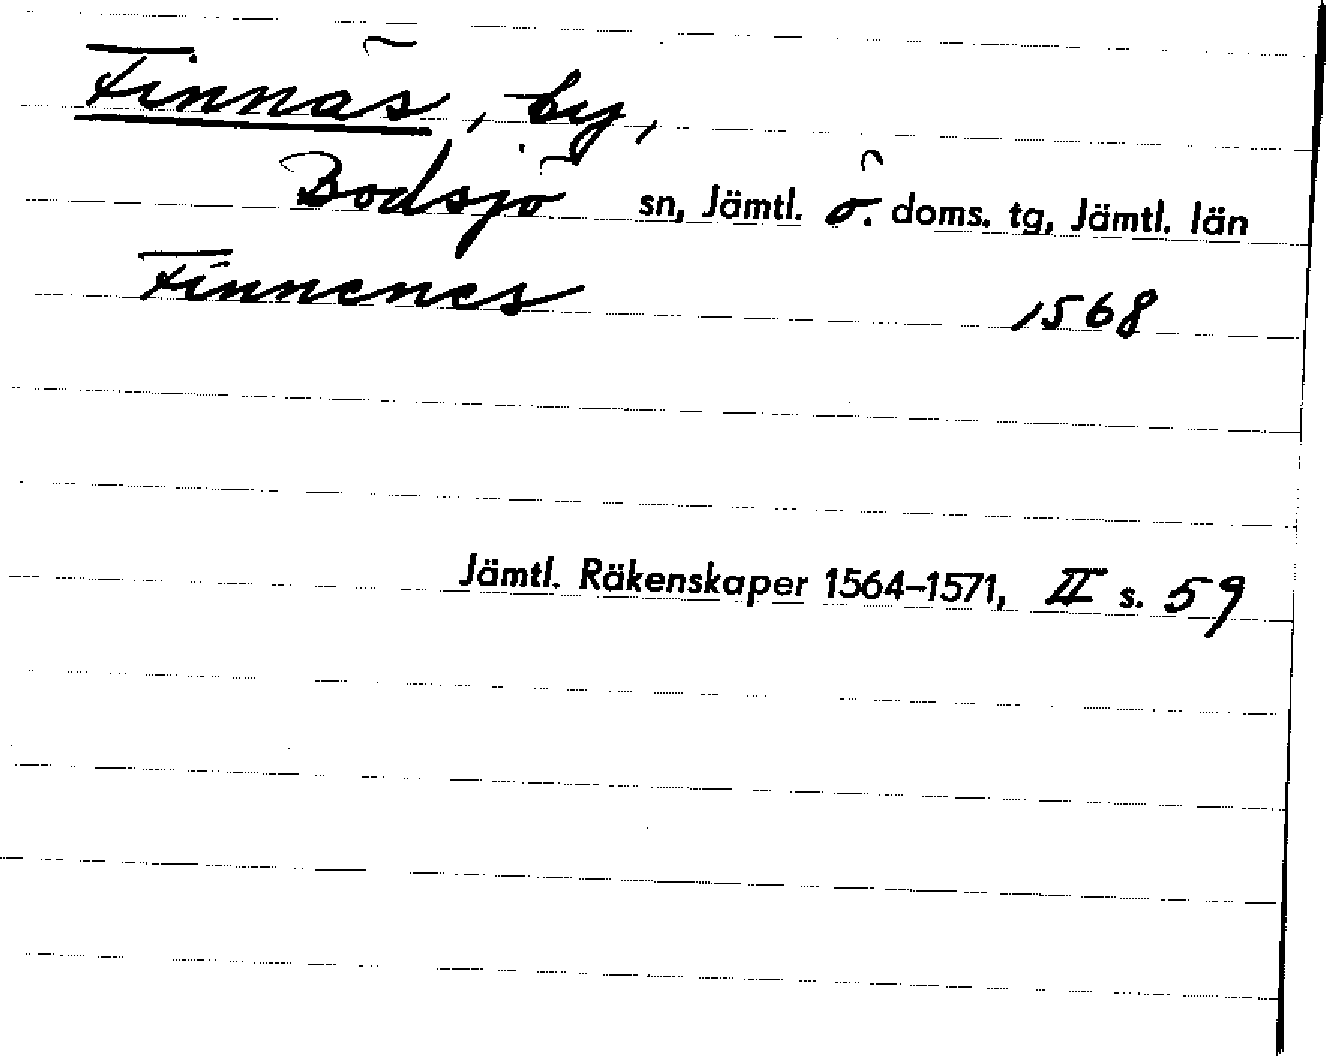 Finnäs, by,
Bodsjö sn, Jämtl. ö. doms. tg, Jämtl. län
Finnenes 1568
Jämtl. Räkenskaper 1564–1571, II s. 59